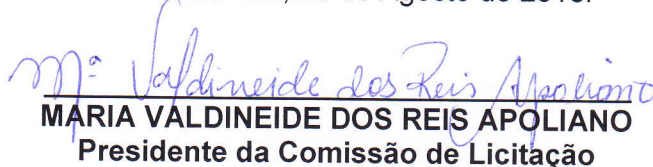 de Agosto de 2018.
Mª Valdineide dos Reis Apoliano
MARIA VALDINEIDE DOS REIS APOLIANO
Presidente da Comissão de Licitação